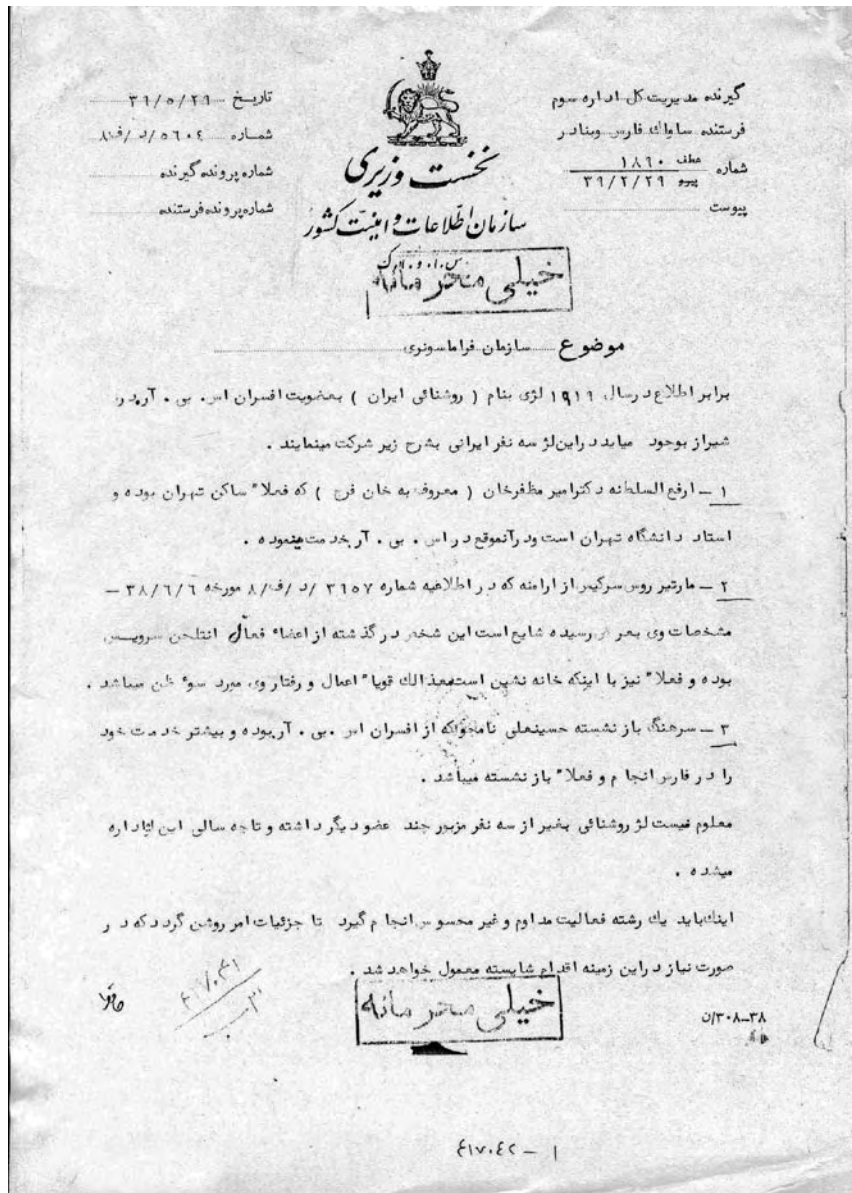 گیرنده مدیریت کل اداره سوم
فرستنده ساواك فارس وبنادر
شماره عطف ۱۸۶۰
پیرو ۳۹/۲/۲۹
پیوست
نخست وزیری
سازمان اطلاعات و امنیت کشور
س.ا.و.ا.ك
تاریخ ۳۹/۵/۲۹
شماره ۵۶۰۴/د/ف۸
شماره پرونده گیرنده
شماره پرونده فرستنده
خیلی محرمانه
موضوع سازمان فراماسونری
برابر اطلاع در سال ۱۹۱۹ لژی بنام ( روشنائی ایران ) بعضویت افسران اس. بی . آر در
شیراز بوجود میاید در این لژ سه نفر ایرانی بشرح زیر شرکت مینمایند .
۱ - ارفع السلطانه دکتر امیر مظفرخان ( معروف به خان فرج ) که فعلا" ساکن تهران بوده و
استاد دانشگاه تهران است ودر آنموقع در اس . بی . آر خدمت مینموده .
۲ - مارتیر روس سرکیس از ارامنه که در اطلاعیه شماره ۳۱۵۷ /د /ف/۸ مورخه ۳۸/۶/۶ -
مشخصات وی بعرض رسیده شایع است این شخص در گذشته از اعضاء فعال انتلجن سرویس
بوده و فعلا" نیز با اینکه خانه نشین است معذالك قویا" اعمال و رفتار وی مورد سوء ظن میباشد .
۳ - سرهنگ باز نشسته حسینعلی نامجو که از افسران اس .بی . آر بوده و بیشتر خدمت خود
را در فارس انجام و فعلا" باز نشسته میباشد .
معلوم نیست لژ روشنائی بغیر از سه نفر مزبور چند عضو دیگر داشته و تا چه سالی این لژ اداره
میشده .
اینك باید یك رشته فعالیت مداوم و غیر محسوس انجام گیرد تا جزئیات امر روشن گردد که در
صورت نیاز در این زمینه اقدام شایسته معمول خواهد شد .
خیلی محرمانه
۴۱۷۰۴۱
ن/۳۰۸-۳۸
۴۱۷۰۴۲ - ۱